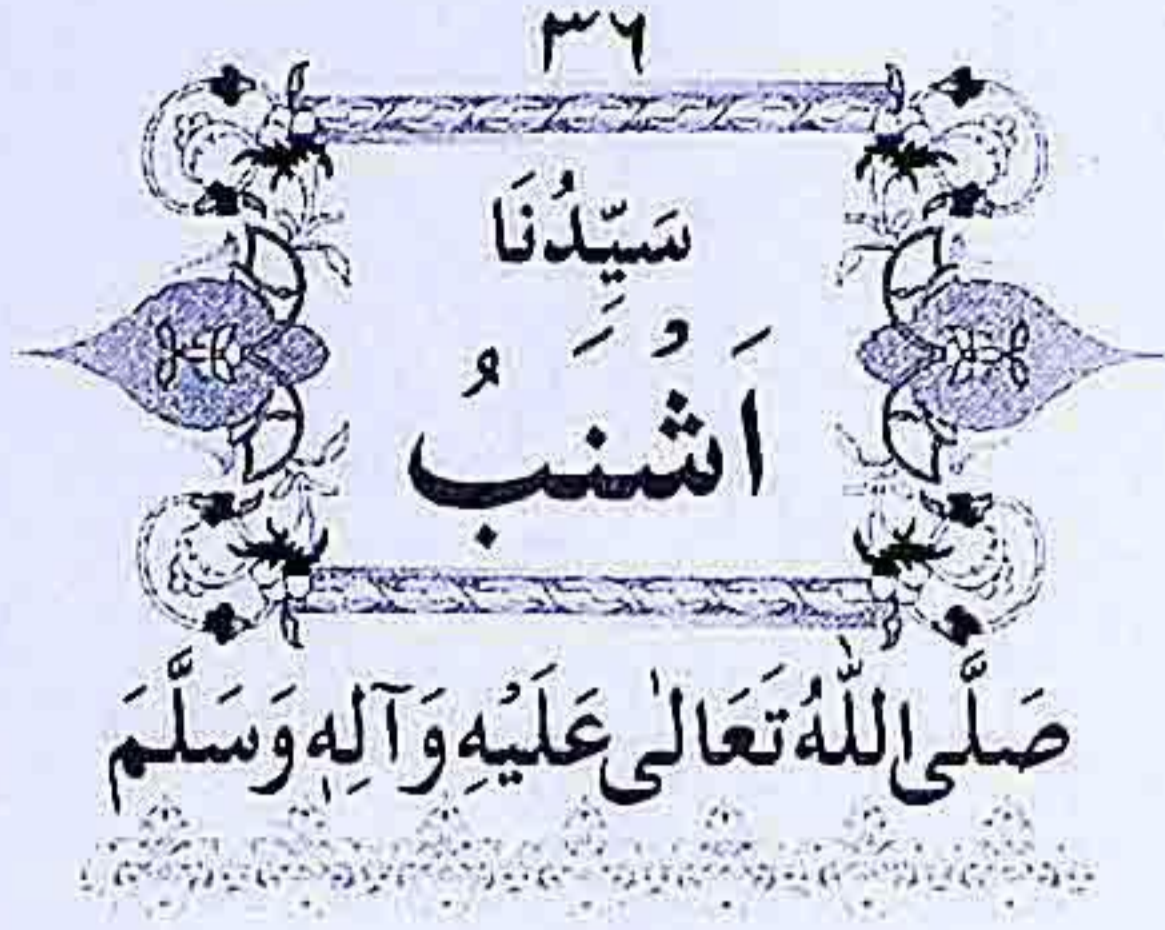 ٣٦
سَيِّدُنَا
اَشْنَبُ
صَلَّى اللّٰهُ تَعَالٰى عَلَيْهِ وَآلِهٖ وَسَلَّمَ